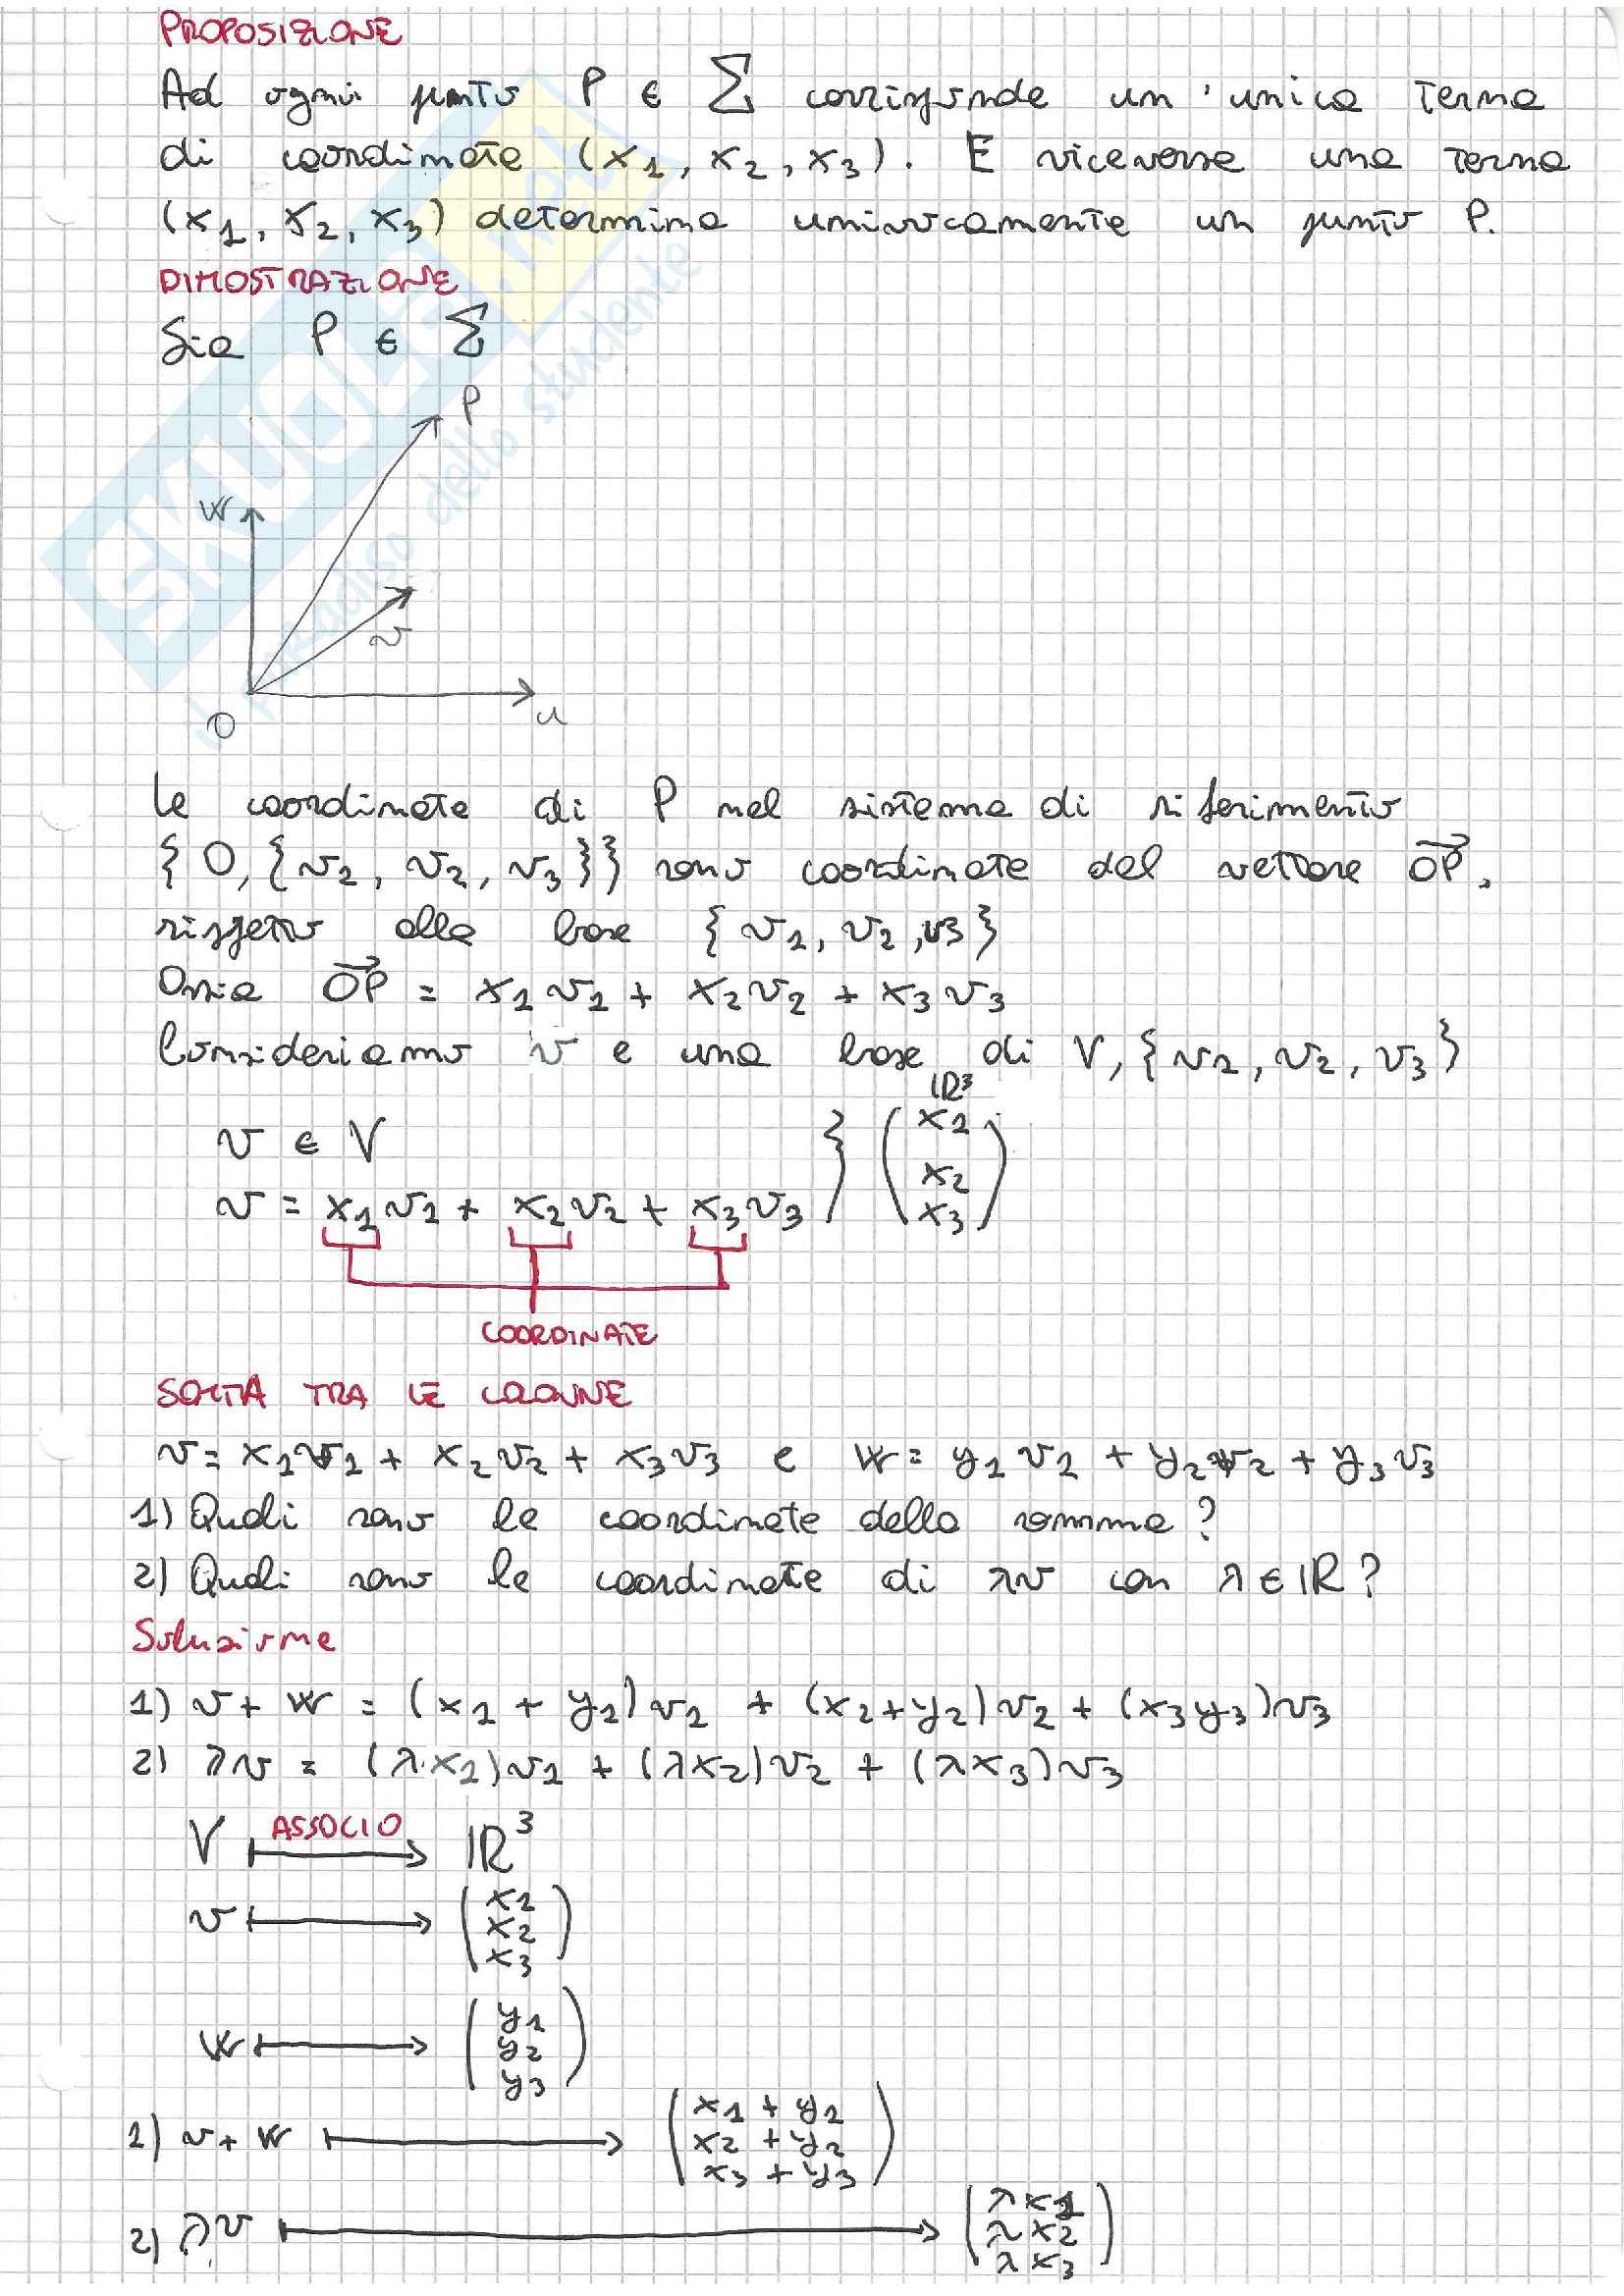 PROPOSIZIONE
Ad ogni punto P ∈ Σ corrisponde un'unica terna
di coordinate (x1, x2, x3). E viceversa una terna
(x1, x2, x3) determina univocamente un punto P.
DIMOSTRAZIONE
Sia P ∈ Σ
P
W
v
O
u
le coordinate di P nel sistema di riferimento
{O, {v1, v2, v3}} sono coordinate del vettore OP,
rispetto alla base {v1, v2, v3}
Ossia OP = x1v1 + x2v2 + x3v3
Consideriamo v e una base di V, {v1, v2, v3}
ℝ³
v ∈ V } (x1
x2
v = x1v1 + x2v2 + x3v3 x3)
COORDINATE
SOMMA TRA LE COLONNE
v = x1v1 + x2v2 + x3v3 e W = y1v1 + y2v2 + y3v3
1) Quali sono le coordinate della somma?
2) Quali sono le coordinate di λv con λ ∈ ℝ?
Soluzione
1) v + W = (x1 + y1)v1 + (x2+y2)v2 + (x3y3)v3
2) λv = (λ·x1)v1 + (λx2)v2 + (λx3)v3
V ASSOCIO ℝ³
v ↦ (x1
x2
x3)
W ↦ (y1
y2
y3)
1) v + W ↦ (x1 + y1
x2 + y2
x3 + y3)
2) λv ↦ (λx1
λx2
λx3)